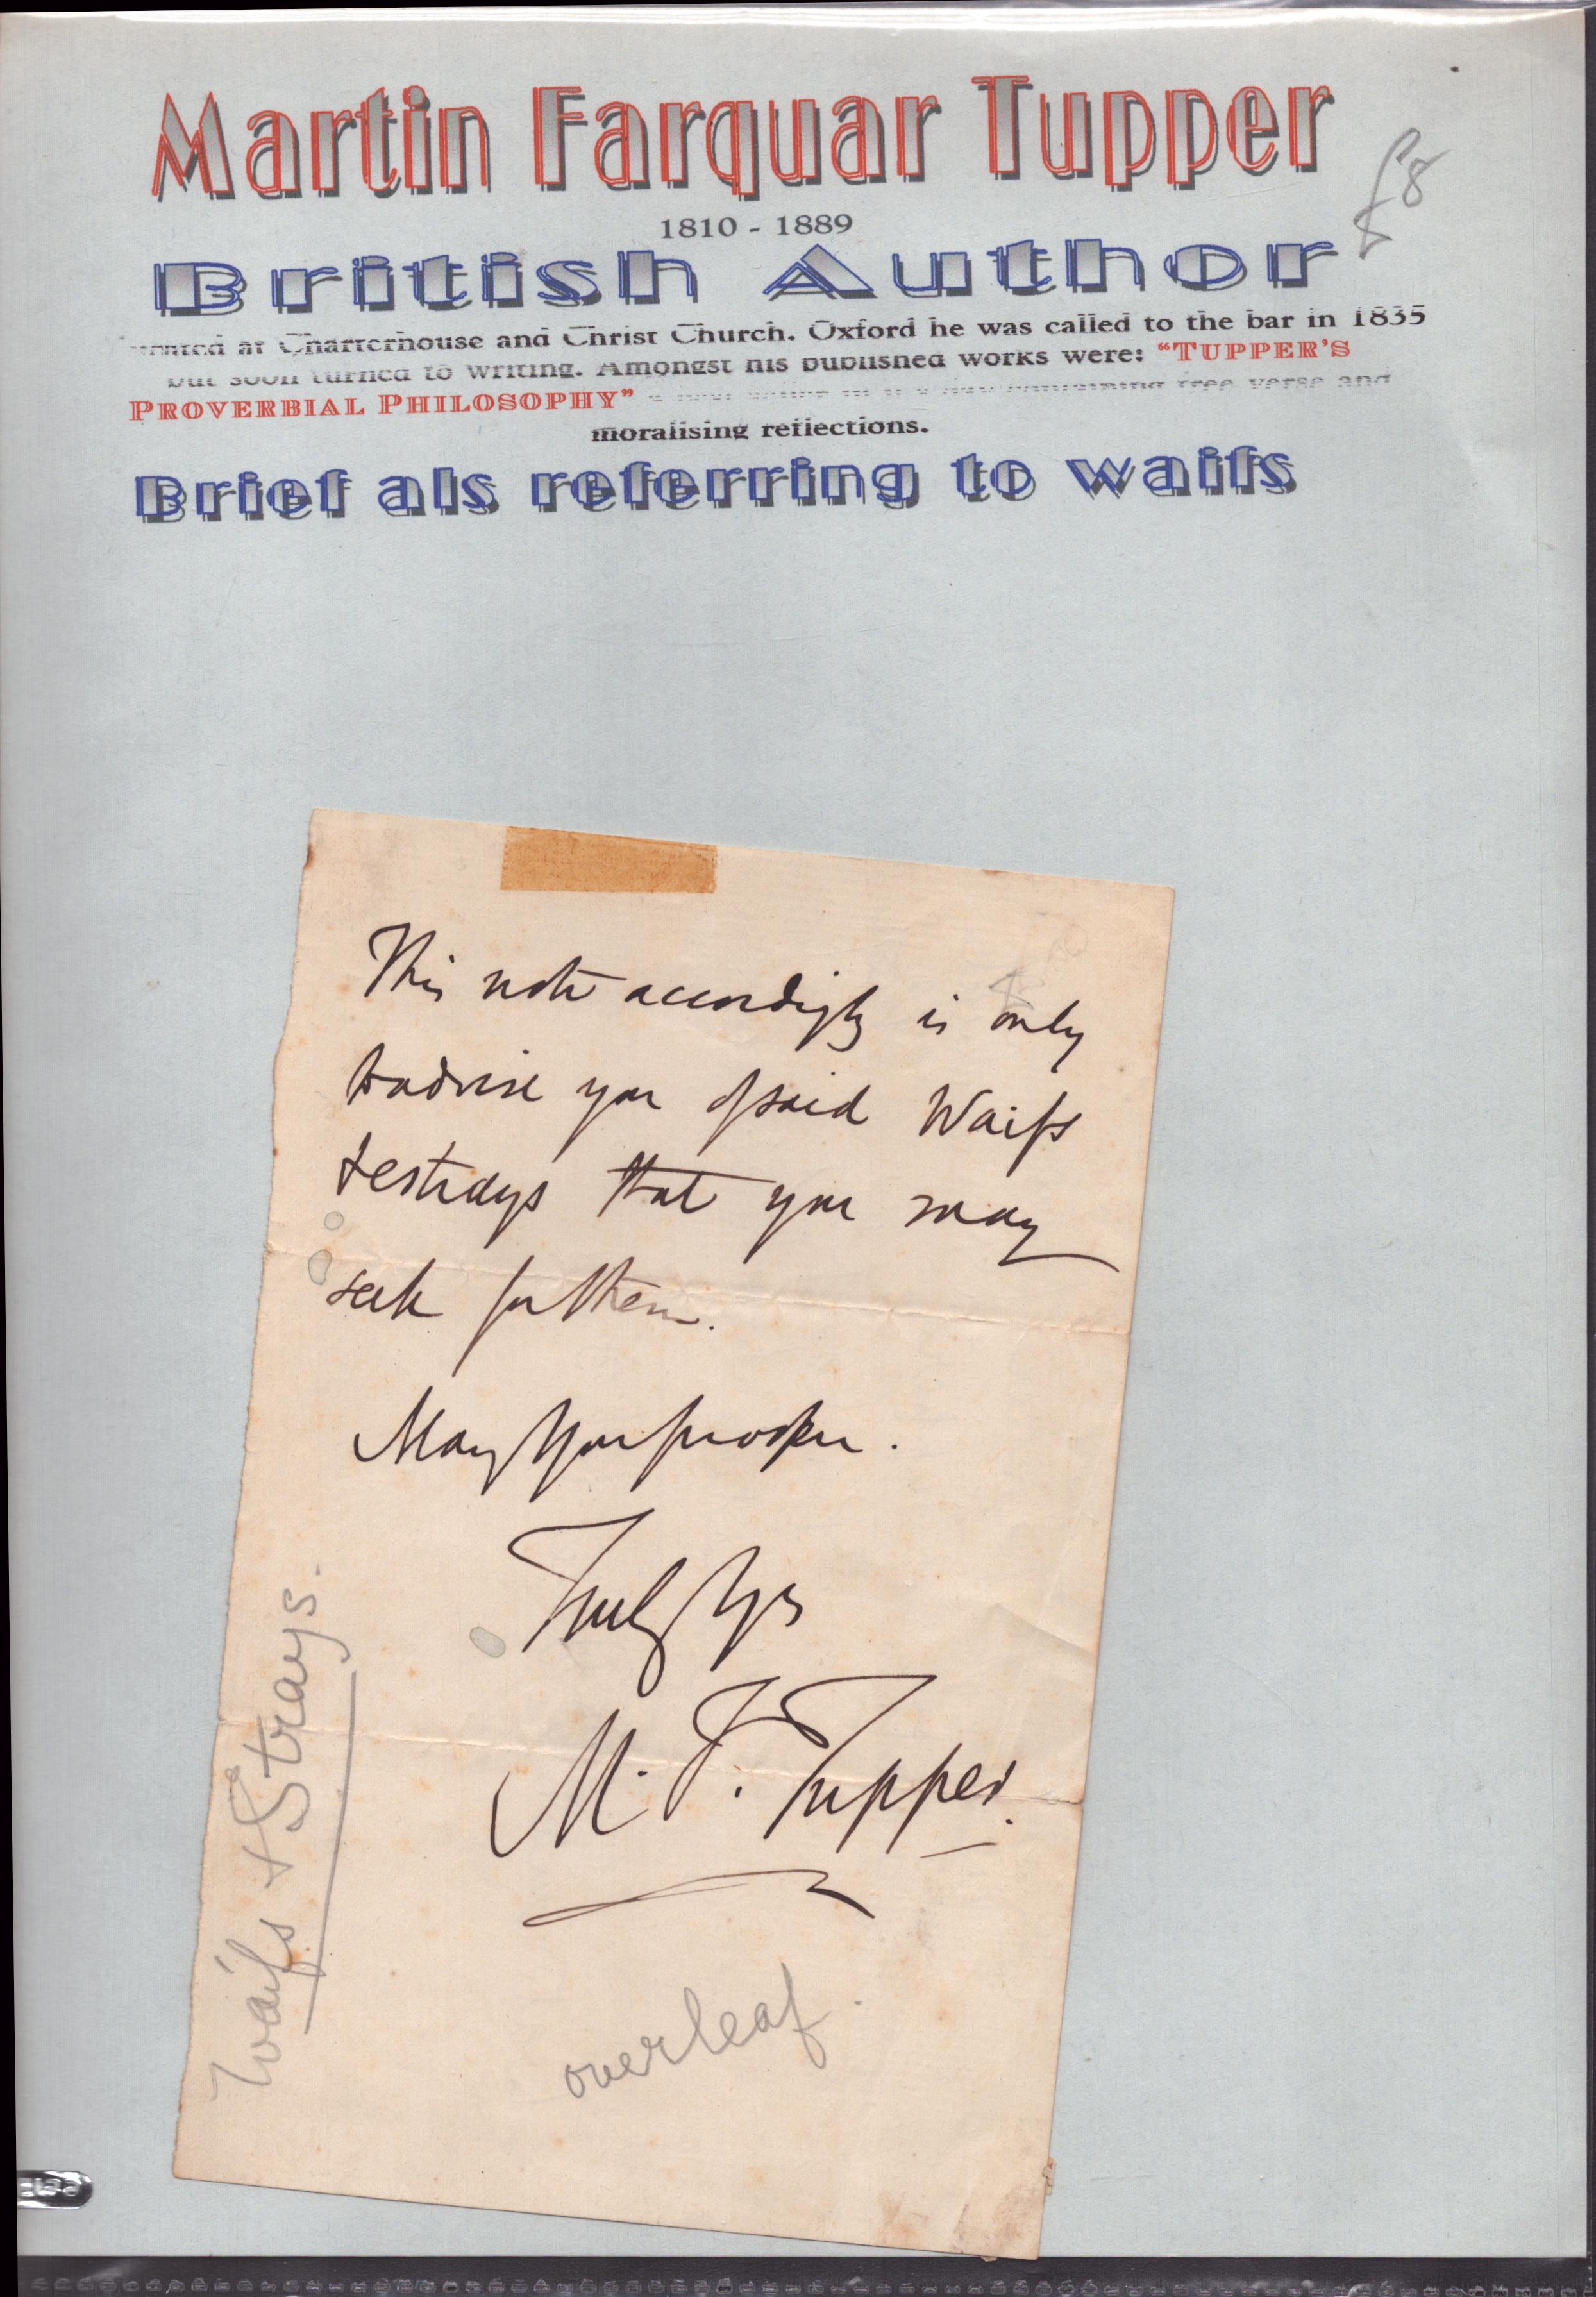 Martin Farquar Tupper
£8
1810 - 1889
British Author
at Charterhouse and Christ Church. Oxford he was called to the bar in 1835
but soon turned to writing. Amongst his published works were: “TUPPER'S
PROVERBIAL PHILOSOPHY” free verse and
moralising reflections.
Brief als referring to waifs
This note accordigly is only
to advise you of said Waifs
& estrays that you may
seek for them.
May you prosper.
Truly Yrs
M. F. Tupper.
Waifs + Strays.
overleaf.